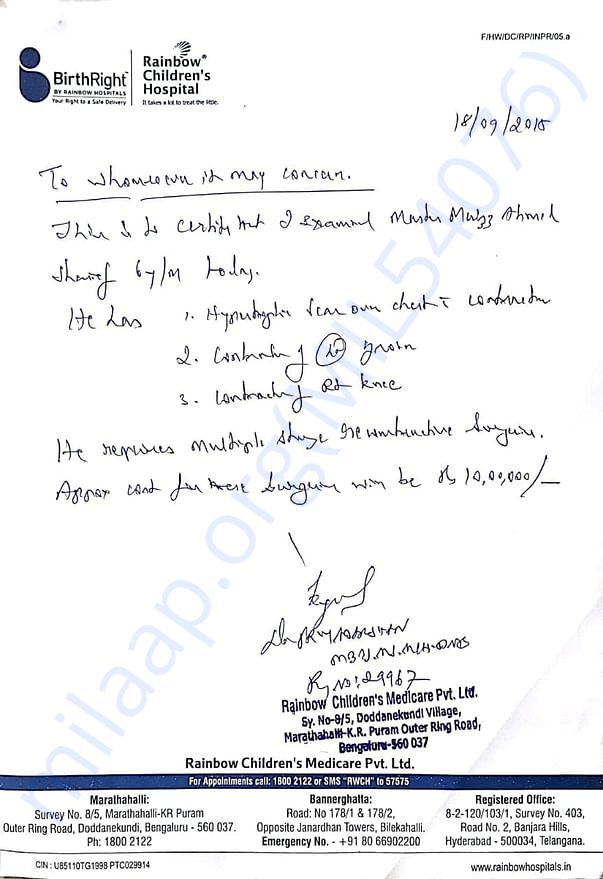 F/HW/DC/RP/INPR/05.a
BirthRight
BY RAINBOW HOSPITALS
Your Right to a Safe Delivery
Rainbow®
Children's
Hospital
It takes a lot to treat the little.
18/09/2018
To whomsoever it may concern.
This is to certify that I examined Master Ahmed
Shareef 6y/M today.
He has 1. Hypertrophic scar over chest c contracture
2. Contracture of groin
3. Contracture of Rt knee
He requires multiple stage reconstructive surgeries.
Approx cost for these surgeries will be Rs 10,00,000/-
Reg No: 29967
Rainbow Children's Medicare Pvt. Ltd.
Sy. No-8/5, Doddanekundi Village,
Marathahalli-K.R. Puram Outer Ring Road,
Bengaluru-560 037
Rainbow Children's Medicare Pvt. Ltd.
For Appointments call: 1800 2122 or SMS "RWCH" to 57575
Marathahalli:
Survey No. 8/5, Marathahalli-KR Puram
Outer Ring Road, Doddanekundi, Bengaluru - 560 037.
Ph: 1800 2122
Bannerghatta:
Road: No 178/1 & 178/2,
Opposite Janardhan Towers, Bilekahalli.
Emergency No. - +91 80 66902200
Registered Office:
8-2-120/103/1, Survey No. 403,
Road No. 2, Banjara Hills,
Hyderabad - 500034, Telangana.
CIN : U85110TG1998 PTC029914
www.rainbowhospitals.in
milaap.org(MIL54076)